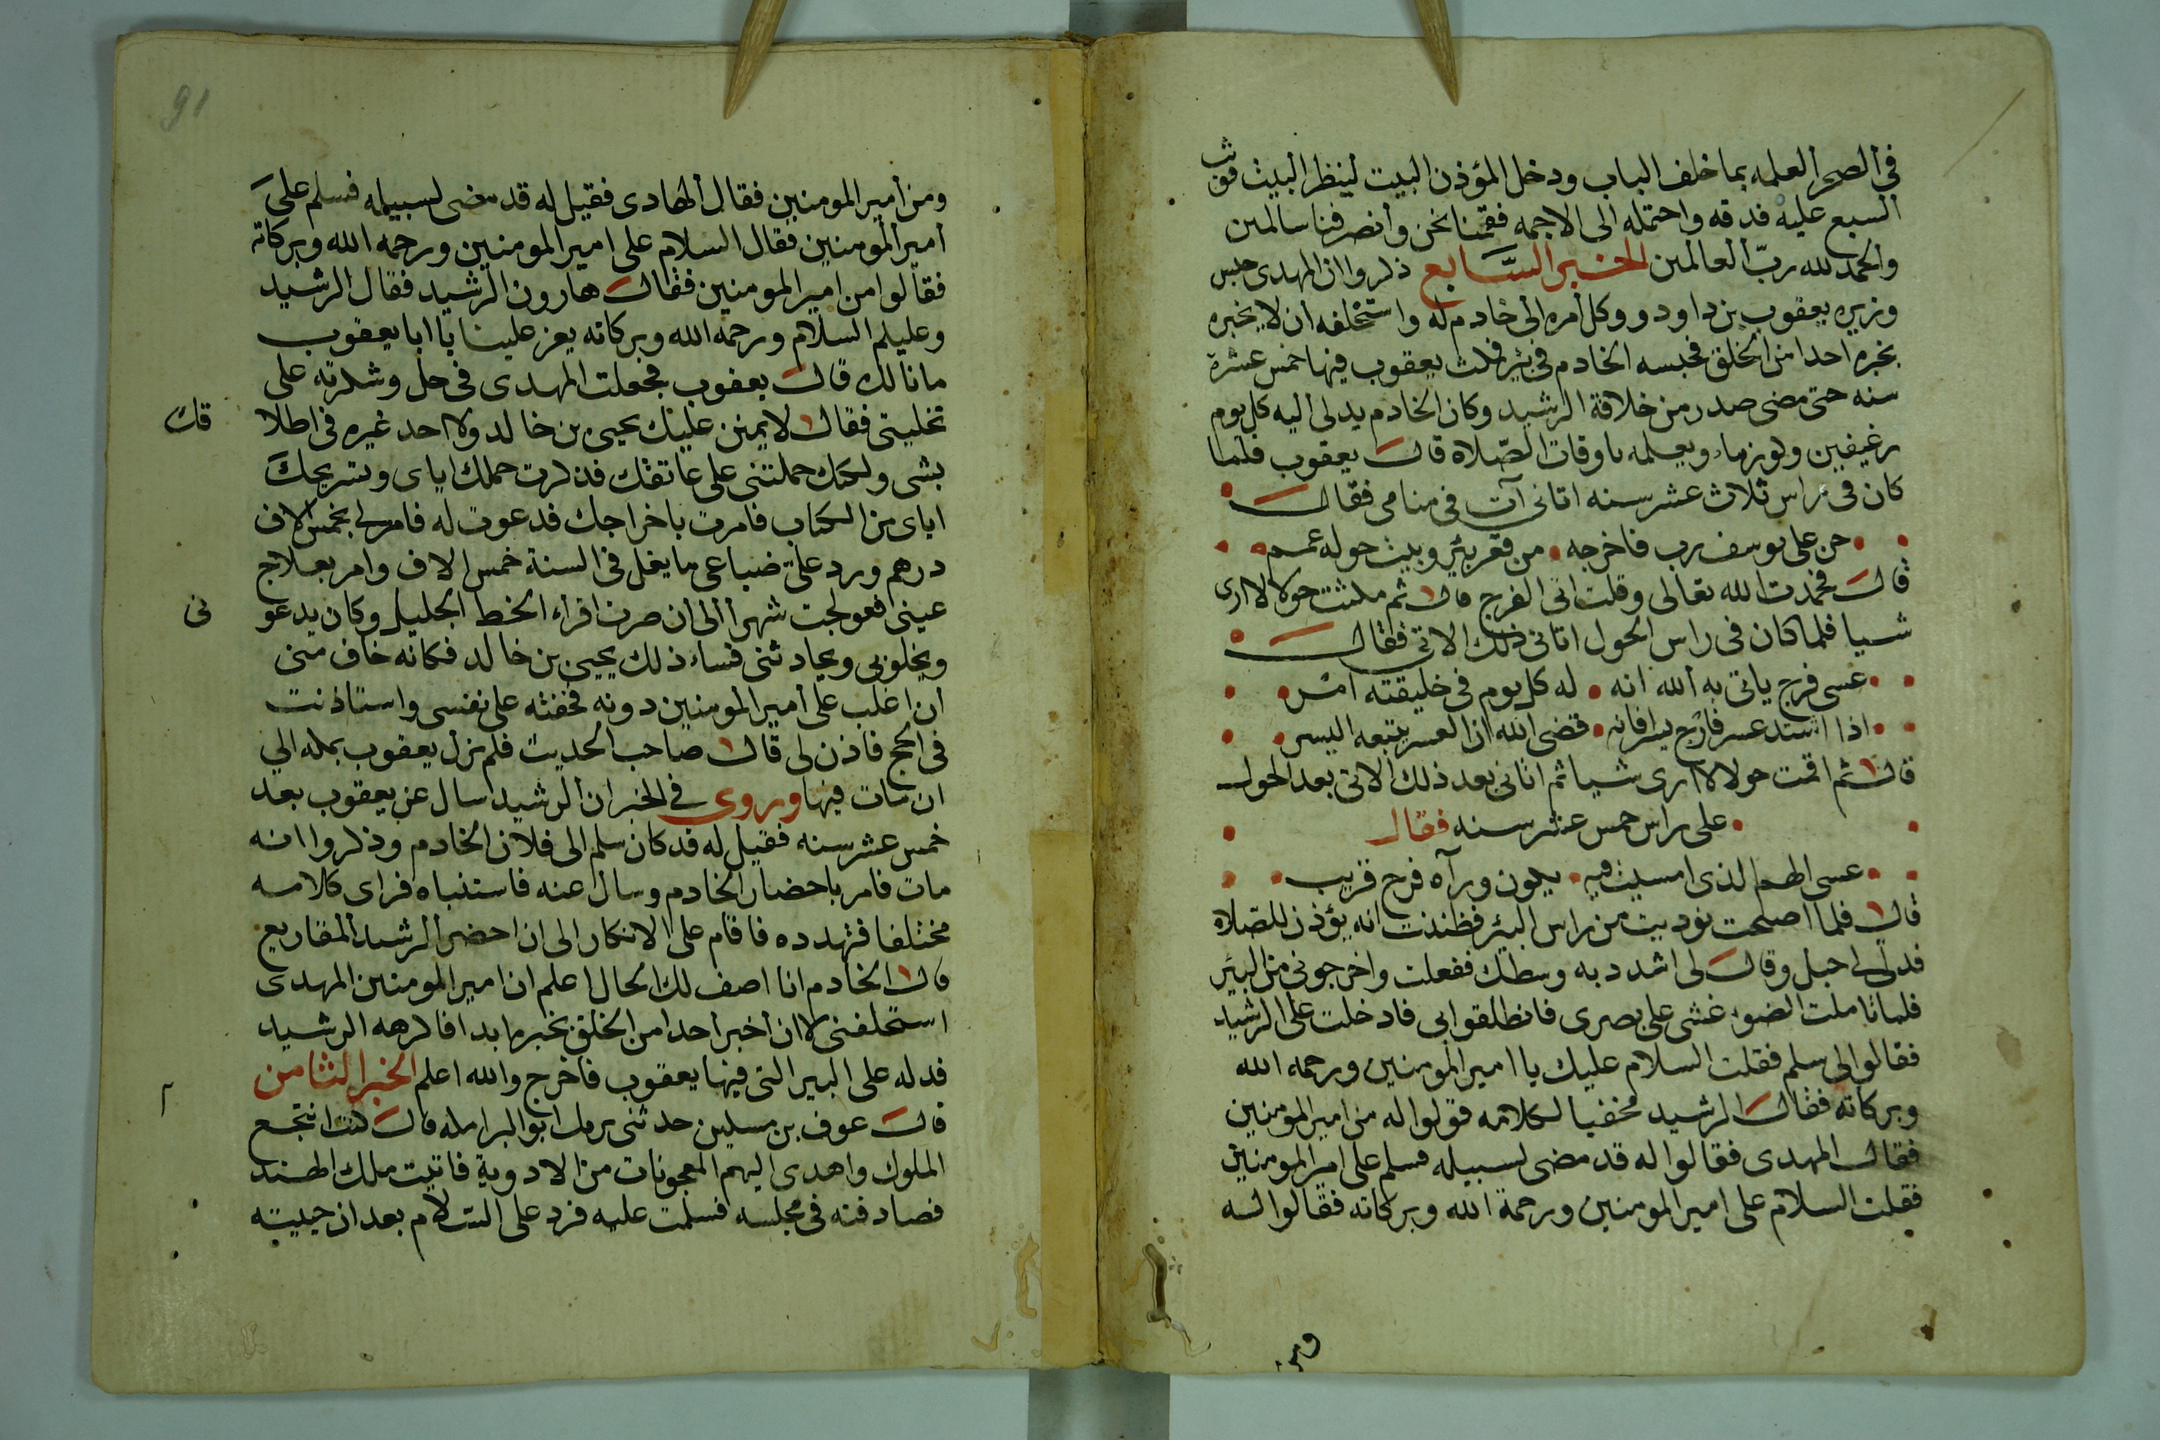 في الصحر العلمه بما خلف الباب ودخل المؤذن البيت لينظر البيت فوثب
السبع عليه فدقه واحتمله الى الاجمه فقمنا نحن وانصرفنا سالمين
والحمد لله ربّ العالمين الخبر السَّابع ذكروا ان المهدى حبس
وزيره يعقوب بن داود ووكل أمره الى خادم له واستحلفه ان لا يخبره
بخبره احدا من الخلق فحبسه الخادم في بئر فلبث يعقوب فيها خمس عشرة
سنه حتى مضى صدر من خلافة الرشيد وكان الخادم يدلى اليه كل يوم
رغيفين وكوز ماء ويعلمه باوقات الصّلاة قال يعقوب فلما
كان في راس ثلاث عشر سنه اتانى آت فى منامى فقال
حن على يوسف رب فاخرجه من قعر بئر وبيت حوله غمم
قال فحمدت الله تعالى وقلت اتى الفرج قال ثم مكثت حولا لا ارى
شيا فلما كان فى راس الحول اتانى ذلك الاتى فقال
عسى فرج ياتى به الله انه له كل يوم فى خليقته امر
اذا اشتد عسر فارج يسرا فانه قضى الله ان العسر يتبعه اليسر
قال ثم اقمت حولا لا ارى شيا ثم اتانى بعد ذلك الاتى بعد الحول
على راس خمس عشر سنه فقال
عسى الهم الذى امسيت فيه يكون ورآه فرج قريب
قال فلما اصبحت نوديت من راس البئر فظننت انه يؤذن للصلاة
فدلى لى حبل وقال لى اشدد به وسطك ففعلت واخرجونى من البئر
فلما تاملت الضوء غشى على بصرى فانطلقوا بى فادخلت على الرشيد
فقالوا لى سلم فقلت السلام عليك يا امير المومنين ورحمه الله
وبركاته فقال الرشيد مخفيا لكلامه قولوا له من امير المومنين
فقال المهدى فقالوا له قد مضى لسبيله فسلم على امير المومنين
فقلت السلام على امير المومنين ورحمة الله وبركاته فقالوا له
ومن
ومن أمير المومنين فقال الهادى فقيل له قد مضى لسبيله فسلم على
امير المومنين فقال السلام على امير المومنين ورحمه الله وبركاته
فقالوا من امير المومنين فقال هارون الرشيد فقال الرشيد
وعليكم السلام ورحمه الله وبركاته يعز علينا يا ابا يعقوب
ما نالك قال يعقوب فجعلت المهدى فى حل وشكرته على
تخليتى فقال لا يمنن عليك يحيى بن خالد ولا احد غيره فى اطلا قك
بشى ولكنك حملتنى على عاتقك فذكرت حملك اياى وتسريحك
اياى من الكتاب فامرت باخراجك فدعوت له فامر لى بخمس الاف
درهم ورد على ضياعى ما يغل فى السنة خمس الاف وامر بعلاج
عينى فعولجت شهرا الى ان صرت اقراء الخط الجليل وكان يدعو نى
ويخلو بى ويحادثنى فساء ذلك يحيى بن خالد فكانه خاف منى
ان اغلب على أمير المومنين دونه فخفته على نفسى واستاذنت
فى الحج فاذن لى قال صاحب الحديث فلم نزل يعقوب بمكه الي
ان مات فيها وروى في الخبر ان الرشيد اسال عن يعقوب بعد
خمس عشر سنه فقيل له قد كان سلم الى فلان الخادم وذكروا انه
مات فامر باحضار الخادم وسال عنه فاستنباه فراى كلامه
مختلفا فتهدده فاقام على الانكار الى ان احضر الرشيد المقاريع
قال الخادم انا اصف لك الحال اعلم ان امير المومنين المهدى
استحلفنى لا ان أخبر أحدا من الخلق بخبره ابدا فاكرهه الرشيد
فدله على البير التى فيها يعقوب فاخرج والله اعلم الخبر الثامن
قال عوف بن مسلين حدثنى برمك ابو البرامكه قال كنت انتجع
الملوك واهدى اليهم المعجونات من الادوية فاتيت ملك الهند
فصادفته فى مجلسه فسلمت عليه فرد على السلام بعد ان حييته
91